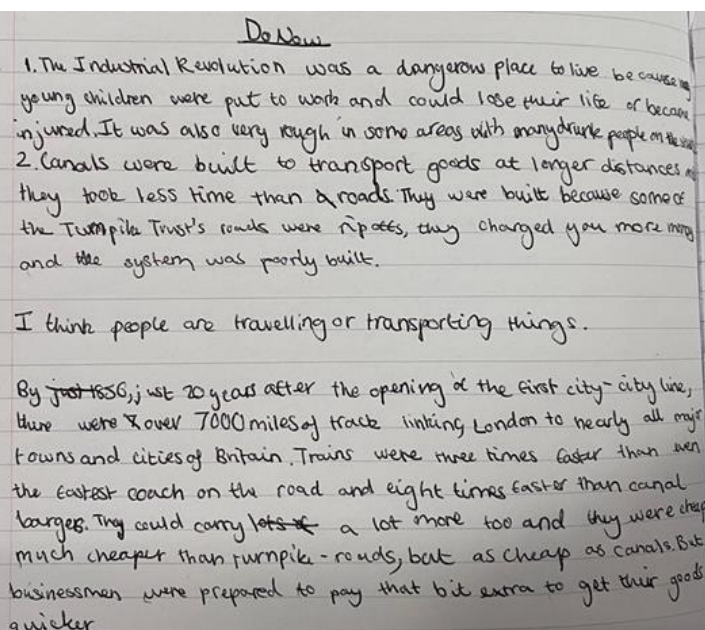 Do Now
1. The Industrial Revolution was a dangerous place to live because
young children were put to work and could lose their life or became
injured. It was also very rough in some areas with many drunk people on the
2. Canals were built to transport goods at longer distances
they took less time than roads. They were built because some of
the Turnpike Trust's roads were ripoffs, they charged you more money
and the system was poorly built.
I think people are travelling or transporting things.
By just 1856, just 20 years after the opening of the first city-city line,
there were over 7000 miles of track linking London to nearly all major
towns and cities of Britain. Trains were three times faster than even
the fastest coach on the road and eight times faster than canal
barges. They could carry lots of a lot more too and they were cheap
much cheaper than turnpike-roads, but as cheap as canals. But
businessmen were prepared to pay that bit extra to get their goods
quicker